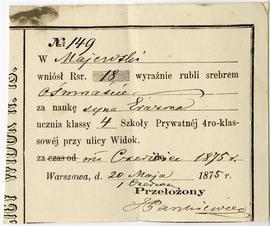 № 149
W Majewski
wniósł Rsr. 18 wyraźnie rubli srebrem
ośmnaście
za naukę syna Erazma
ucznia klassy 4 Szkoły Prywatnéj 4ro-klas-
sowéj przy ulicy Widok.
za czas od m. Czerwiec 1875 r.
Warszawa, d. 20 Maja 1875 r.
1 Czerwca
Przełożony